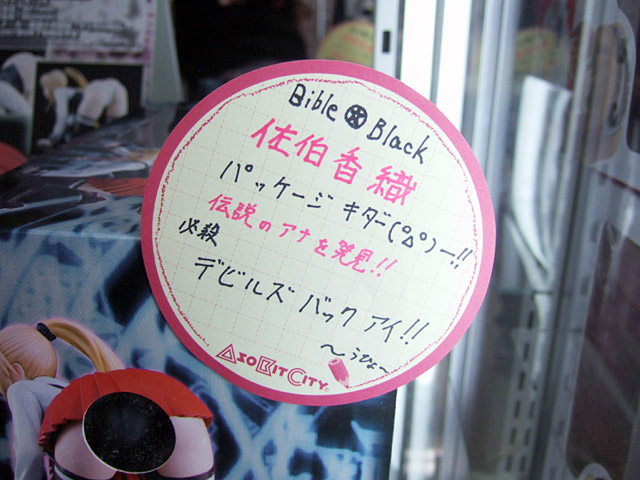 Bible Black
佐伯香織
パッケージ キター(゚Д゚)ー!!
伝説のアナを発見!!
必殺
デビルズ バック アイ!!
〜うひょ〜
ASOBITCITY